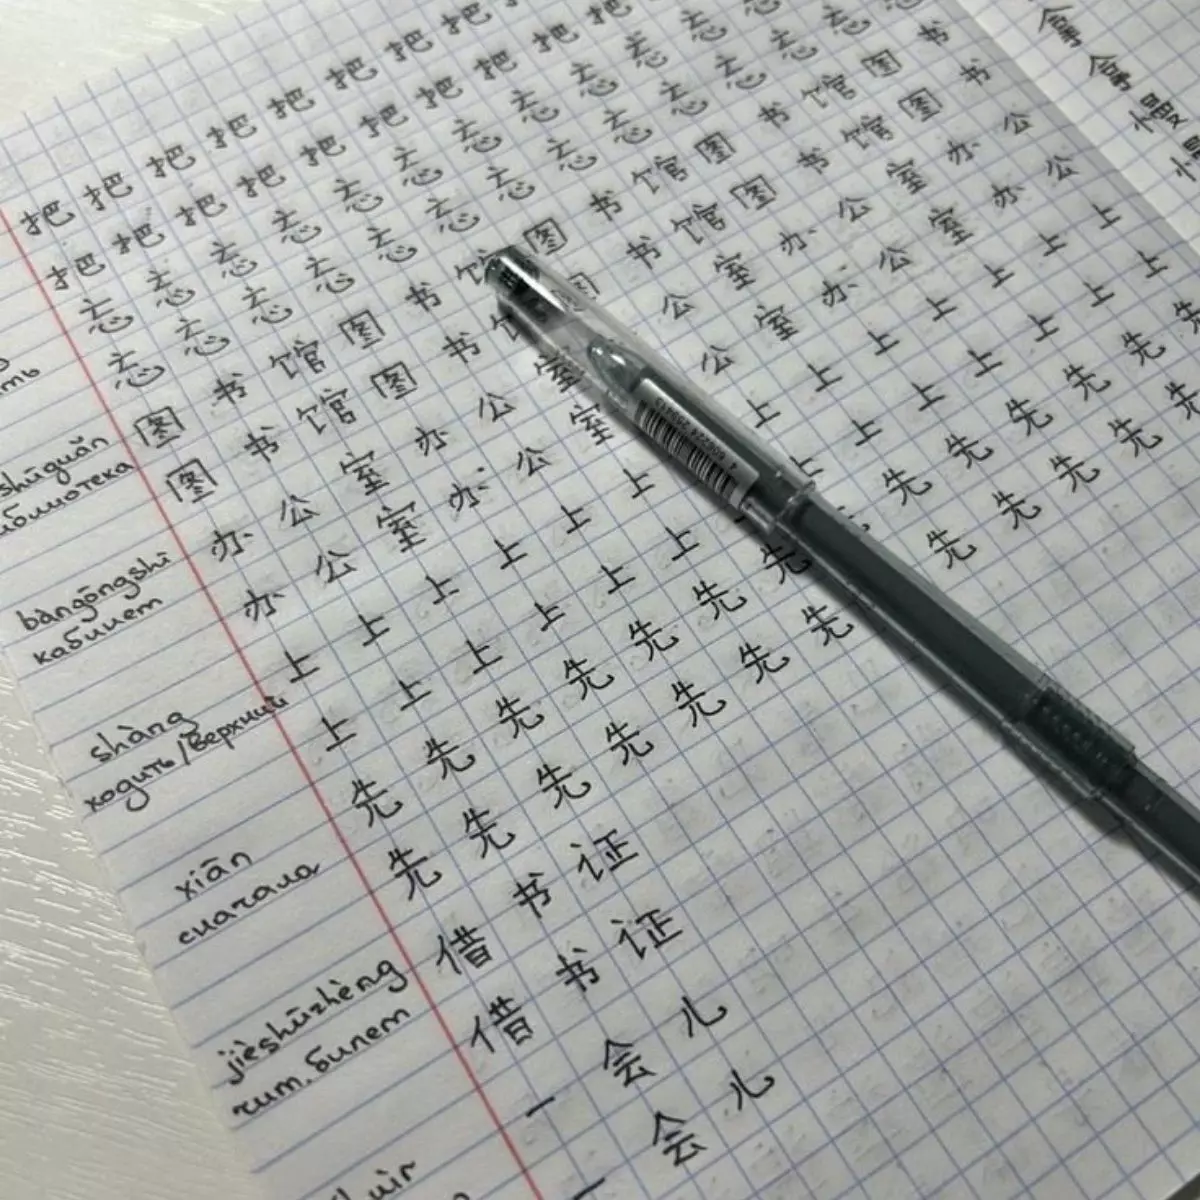 把 把 把 把 把 把 把 把
把 把 把 把 把 把 把 把 把 把
忘 忘 忘 忘 忘 忘 忘 忘 忘 忘 忘
忘 忘 忘 忘 忘 忘 忘 忘 忘 忘 忘 忘 忘
shūguǎn
библиотека
图 书 馆 图 书 馆 图 书 馆 图 书 馆 图 书
图 书 馆 图 书 馆 图 书 馆 图 书 馆 图 书
bàngōngshì
кабинет
办 公 室 办 公 室 公 室 办 公 室 办 公
办 公 室 办 公 室 公 室 办 公 室 办 公
shàng
ходить/верхний
上 上 上 上 上 上 上 上 上 上 上 上 上
上 上 上 上 上 上 上 上 上 上 上 上 上
xiān
сначала
先 先 先 先 先 先 先 先 先 先 先 先 先
先 先 先 先 先 先 先 先 先 先 先 先
jièshūzhèng
чит. билет
借 书 证
借 书 证
一 会 儿
一 会 儿
拿
拿
慢
慢